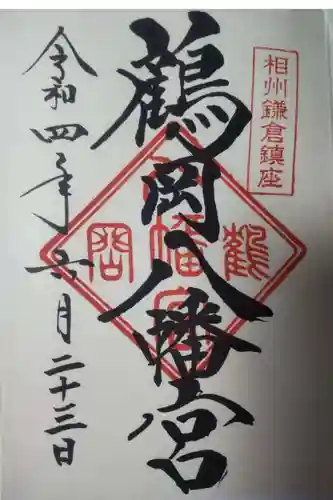 相州鎌倉鎮座
鶴岡八幡宮
令和四年六月二十三日